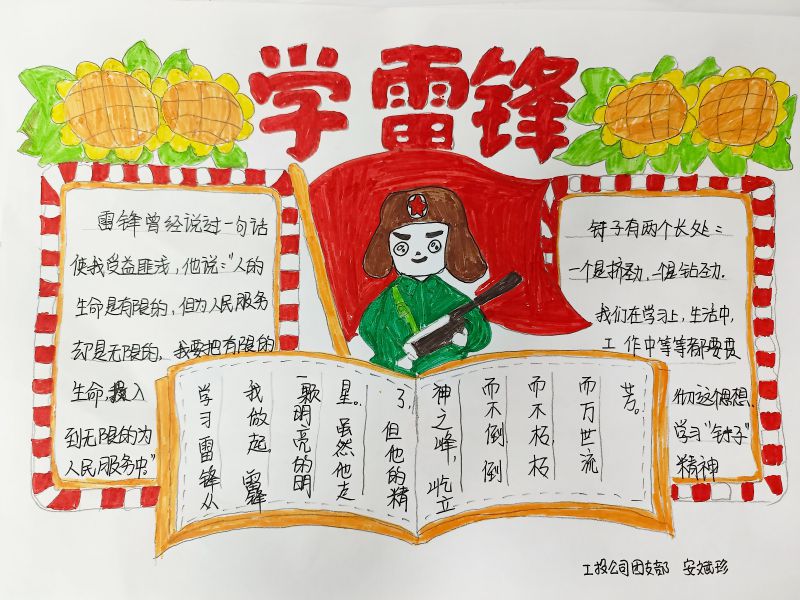 学雷锋
雷锋曾经说过一句话
使我受益匪浅，他说："人的
生命是有限的，但为人民服务
却是无限的，我要把有限的
生命，投入
到无限的为
人民服务中。"
钉子有两个长处：
一个是挤劲，一个是钻劲。
我们在学习上，生活中，
工作中等等都要贯
彻这个思想，
学习"钉子"
精神
学习雷锋从
我做起，雷锋
一颗明亮的明
星。虽然他走
了，但他的精
神之峰，屹立
而不倒，倒
而不朽，朽
而万世流
芳。
工投公司团支部 安斌珍